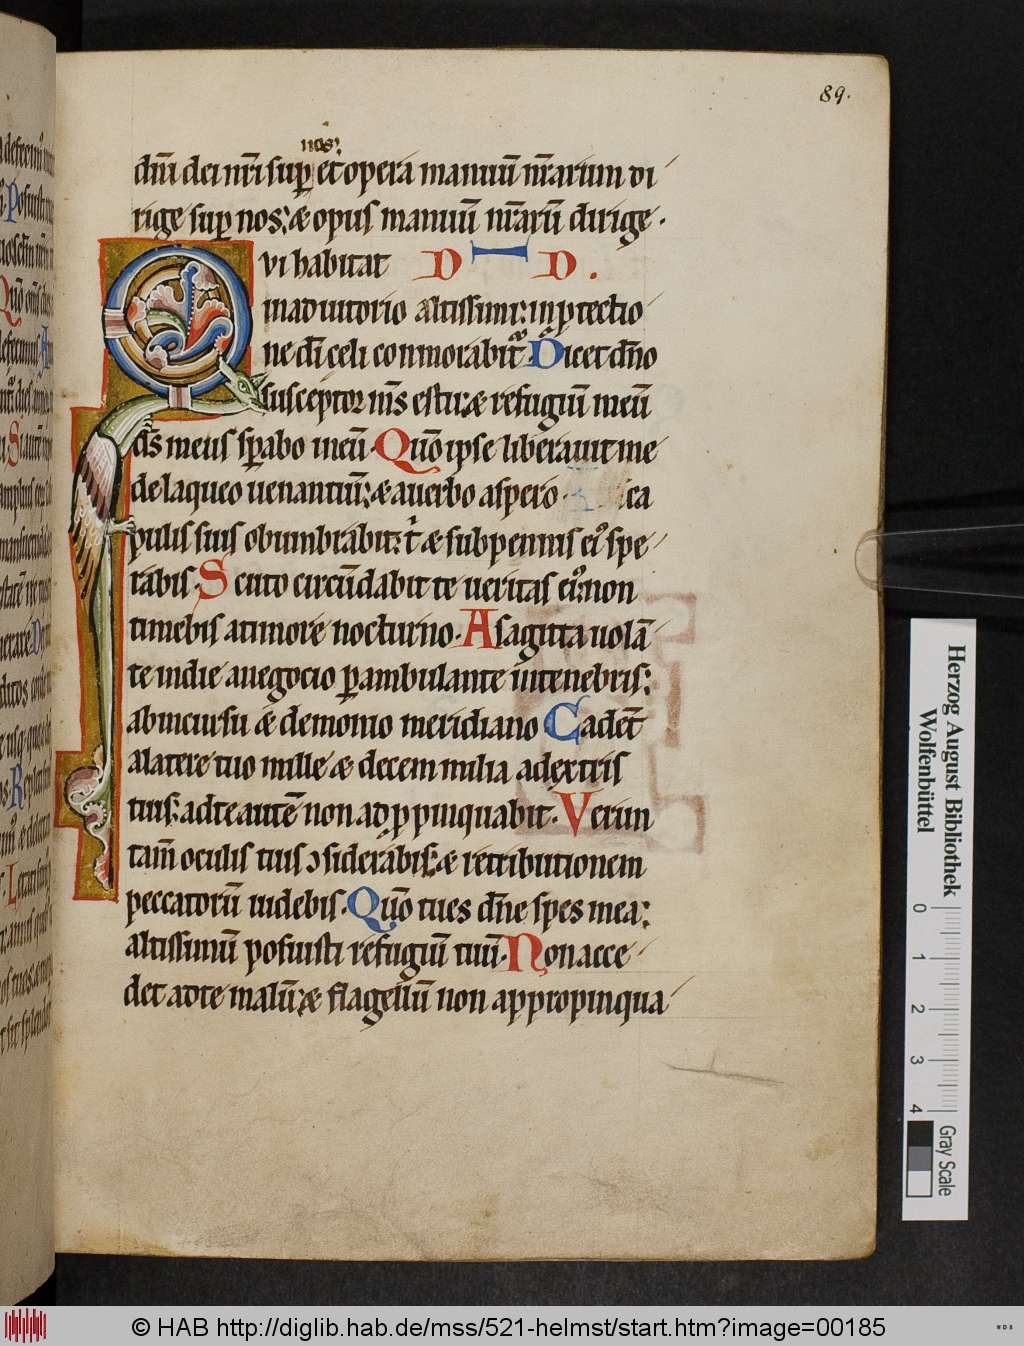 89.
nos:
dn̄i dei nr̄i sup̲ et opera manuū nr̄arum di
rige sup nos: & opus manuū nr̄arū dirige.
QVi habitat D I D.
in adiutorio altissimi: in ptectio
ne dī celi conmorabit᷑. Dicet dn̄o
susceptor m̄s es tu: & refugiū meū
ds̄ meus sp̲abo in eū. Qm̄o ipse liberauit me
de laqueo uenantiū: & a uerbo aspero. ca
pulis suis obumbrabit: t᷑ & sub pennis ei᷒ spe
rabis. Scuto circūdabit te ueritas ei᷒: non
timebis a timore nocturno. A sagitta uolā
te in die a negocio p̲ambulante in tenebris:
ab incursu & demonio meridiano Cadet̄
a latere tuo mille & decem milia a dextris
tuis: ad te autē non adp̲pinquabit. Verun
tam̄ oculis tuis ↄsiderabis: & retributionem
peccatorū uidebis. Qm̄o tu es dn̄e spes mea:
altissimū posuisti refugiū tuū. Non acce
det ad te malū: & flagellū non appropinqua
Herzog August Bibliothek
Wolfenbüttel
0 1 2 3 4
Gray Scale
© HAB http://diglib.hab.de/mss/521-helmst/start.htm?image=00185
WDB